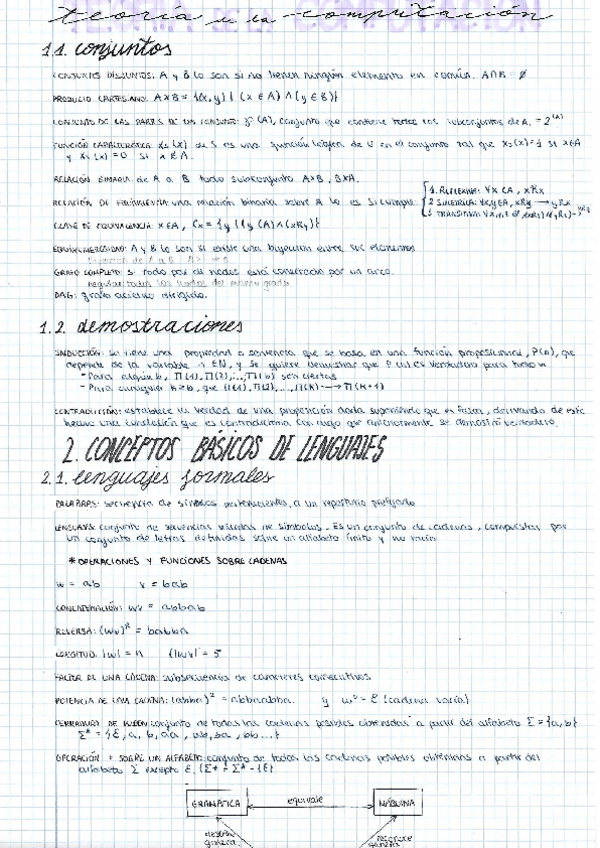 teoría de la computación
1.1. conjuntos
CONJUNTOS DISJUNTOS: A y B lo son si no tienen ningún elemento en común. A∩B = ∅
PRODUCTO CARTESIANO: A×B = {(x,y) | (x ∈ A) ∧ (y ∈ B)}
CONJUNTO DE LAS PARTES DE UN CONJUNTO: (A), conjunto que contiene todos los subconjuntos de A. = 2^|A|
FUNCIÓN CARACTERÍSTICA: (x) de S es una función lógica de U en el conjunto tal que (x)=1 si x∈A
y (x)=0 si x∉A.
RELACIÓN BINARIA: de A a B todo subconjunto A×B, B×A.
RELACIÓN DE EQUIVALENCIA: una relación binaria sobre A lo es si cumple:
1. REFLEXIVA: ∀x∈A, xRx
2. SIMÉTRICA: ∀x,y∈A, xRy → yRx
3. TRANSITIVA:
CLASE DE EQUIVALENCIA: x∈A, Cx = {y | (y∈A)∧(xRy)}
EQUINUMEROSIDAD: A y B lo son si existe una biyección entre sus elementos
GRAFO COMPLETO: si todo par de nodos está conectado por un arco.
regular: todos los nodos del mismo grado
DAG: grafo acíclico dirigido.
1.2. demostraciones
INDUCCIÓN: se tiene una propiedad o sentencia que se basa en una función proposicional, P(n), que
depende de la variable ∈N, y se quiere demostrar que P(n) es verdadero para todo n
- Para algún b, Π(1), Π(2),..., Π(b) son ciertas
- Para cualquier k≥b, que Π(1), Π(2),...,Π(k) → Π(k+1)
CONTRADICCIÓN: establece la verdad de una proposición dada suponiendo que es falsa, derivando de este
hecho una conclusión que es contradictoria con algo que anteriormente se demostró verdadero.
2. CONCEPTOS BÁSICOS DE LENGUAJES
2.1. lenguajes formales
PALABRAS: secuencia de símbolos pertenecientes a un repertorio prefijado
LENGUAJE: conjunto de secuencias válidas de símbolos. Es un conjunto de cadenas, compuestas por
un conjunto de letras definidas sobre un alfabeto finito y no vacío
* OPERACIONES Y FUNCIONES SOBRE CADENAS
w = ab v = bab
CONCATENACIÓN: wv = abbab
REVERSA: (wv)^R = babba
LONGITUD: |w| = n |wv| = 5
FACTOR DE UNA CADENA: subsecuencia de caracteres consecutivos
POTENCIA DE UNA CADENA: (abba)² = abbaabba. y w⁰ = ε (cadena vacía)
CERRADURA DE KLEEN: conjunto de todas las cadenas posibles obtenidas a partir del alfabeto Σ = {a, b}
Σ* = {ε, a, b, aa, ab, ba, bb ...}
OPERACIÓN + SOBRE UN ALFABETO: conjunto de todas las cadenas posibles obtenidas a partir del
alfabeto Σ excepto ε. (Σ+ = Σ* - {ε})
GRAMÁTICA equivale MÁQUINA
describe reconoce
genera genera